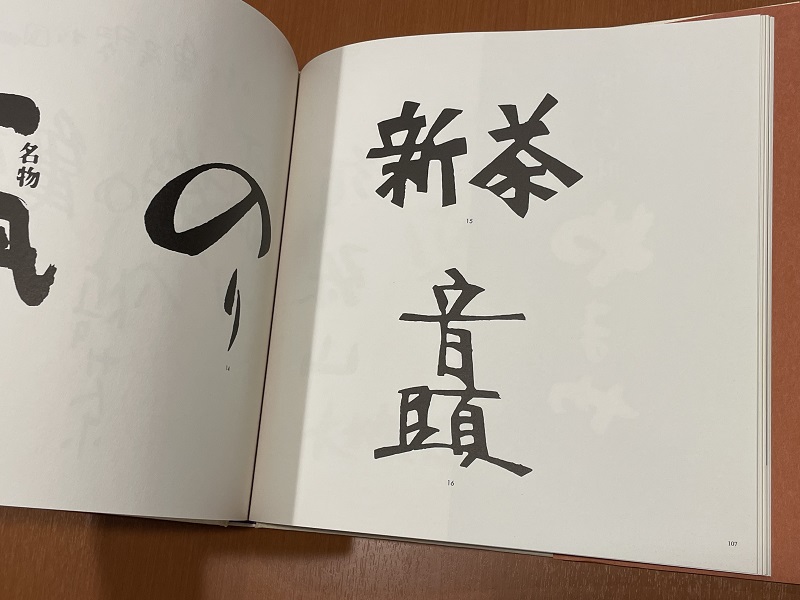 名物
のり
14
新茶
15
音
16
107